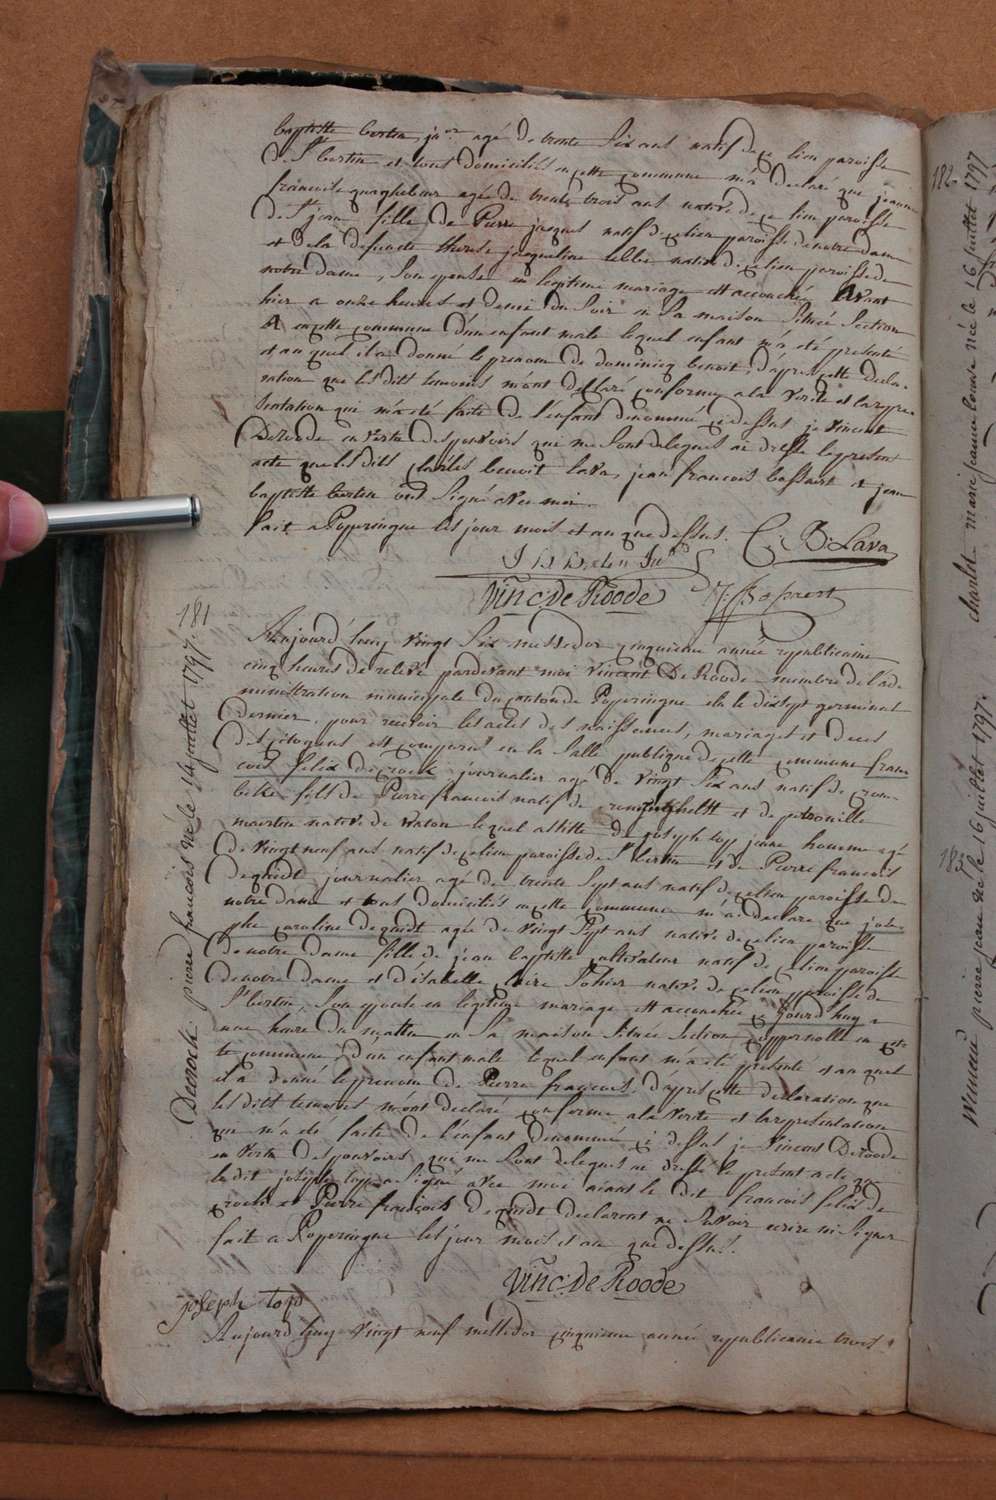 baptiste bertin, jnor agé de trente six ans natif de ce lieu paroisse
de St bertin et tous domiciliés en cette commune m'a declaré que jeanne
francoise quaghebeur agée de trente trois ans native de ce lieu paroisse
de St jean fille de Pierre jacques natif de ce lieu paroisse de notre dame
et de la defuncte therese jacqueline native de ce lieu paroisse de
notre dame, son epouse en legitime mariage est accouchée avant
hier a onze heures et demie du soir en sa maison située section
A en cette commune d'un enfant male lequel enfant m'a eté presenté
et au quel il a donné le prenom de dominicq benoit, d'apres cette decla-
ration que les dits temoins m'ont declaré conforme a la verité et la repre-
sentation qui m'a eté faite de l'enfant denommé ci dessus je vincent
Deroode en vertu des pouvoirs qui me sont delegues ai dressé le present
acte que les dits charles benoit Lava, jean francois bassaert et jean
baptiste bertin ont signé avec moi.
fait a Poperingue les jour mois et an que dessus. C. B. Lava
J B Bertin Jnr
Vinc. De Roode
181
Aujourd'huy vingt six messidor cinquieme année republicaine
cinq heures de relevé pardevant moi Vincent De Roode membre de l'ad-
ministration municipale du canton de Poperingue elu le dix sept germinal
dernier, pour recevoir les actes des naissances, mariages et deces
des citoyens est comparu en la salle publique de cette commune fran-
cois felix decrock journalier agé de vingt six ans natif de crom-
beke fils de Pierre francois natif de et de petronille
native de Waton lequel assisté de joseph top jeune homme agé
de vingt neuf ans natif de ce lieu paroisse de St bertin et de Pierre francois
dequidt journalier agé de trente sept ans natif de ce lieu paroisse de
notre dame et tous domiciliés en cette commune m'a declaré que jose-
phe caroline dequidt agée de vingt sept ans native de ce lieu paroisse
de notre dame fille de jean baptiste cultivateur natif de ce lieu paroisse
de notre dame et d'isabelle claire native de ce lieu paroisse de
St bertin, son epouse en legitime mariage est accouchée ce jourd'huy a
une heure du mattin en sa maison située section en cet-
te commune, d'un enfant male lequel enfant m'a eté presenté et au quel
il a donné le prenom de Pierre francois, d'apres cette declaration que
les dits temoins m'ont declaré conforme a la verité et la representation
qui m'a eté faite de l'enfant denommé ci dessus je Vincent Deroode
en vertu des pouvoirs qui me sont delegues ai dressé le present acte que
le dit joseph top a signé avec moi aiant le dit francois felix de
crock et Pierre francois dequidt declarant ne savoir ecrire ni signer
fait a Poperingue les jour mois et an que dessus.
Vinc. De Roode
joseph top
Aujourd'huy vingt neuf messidor cinquieme année republicaine trois
Decrock pierre francois né le 14 juillet 1797.
182
charlet marie jeanne louise née le 16 juillet 1797
183
pierre jean né le 16 juillet 1797.